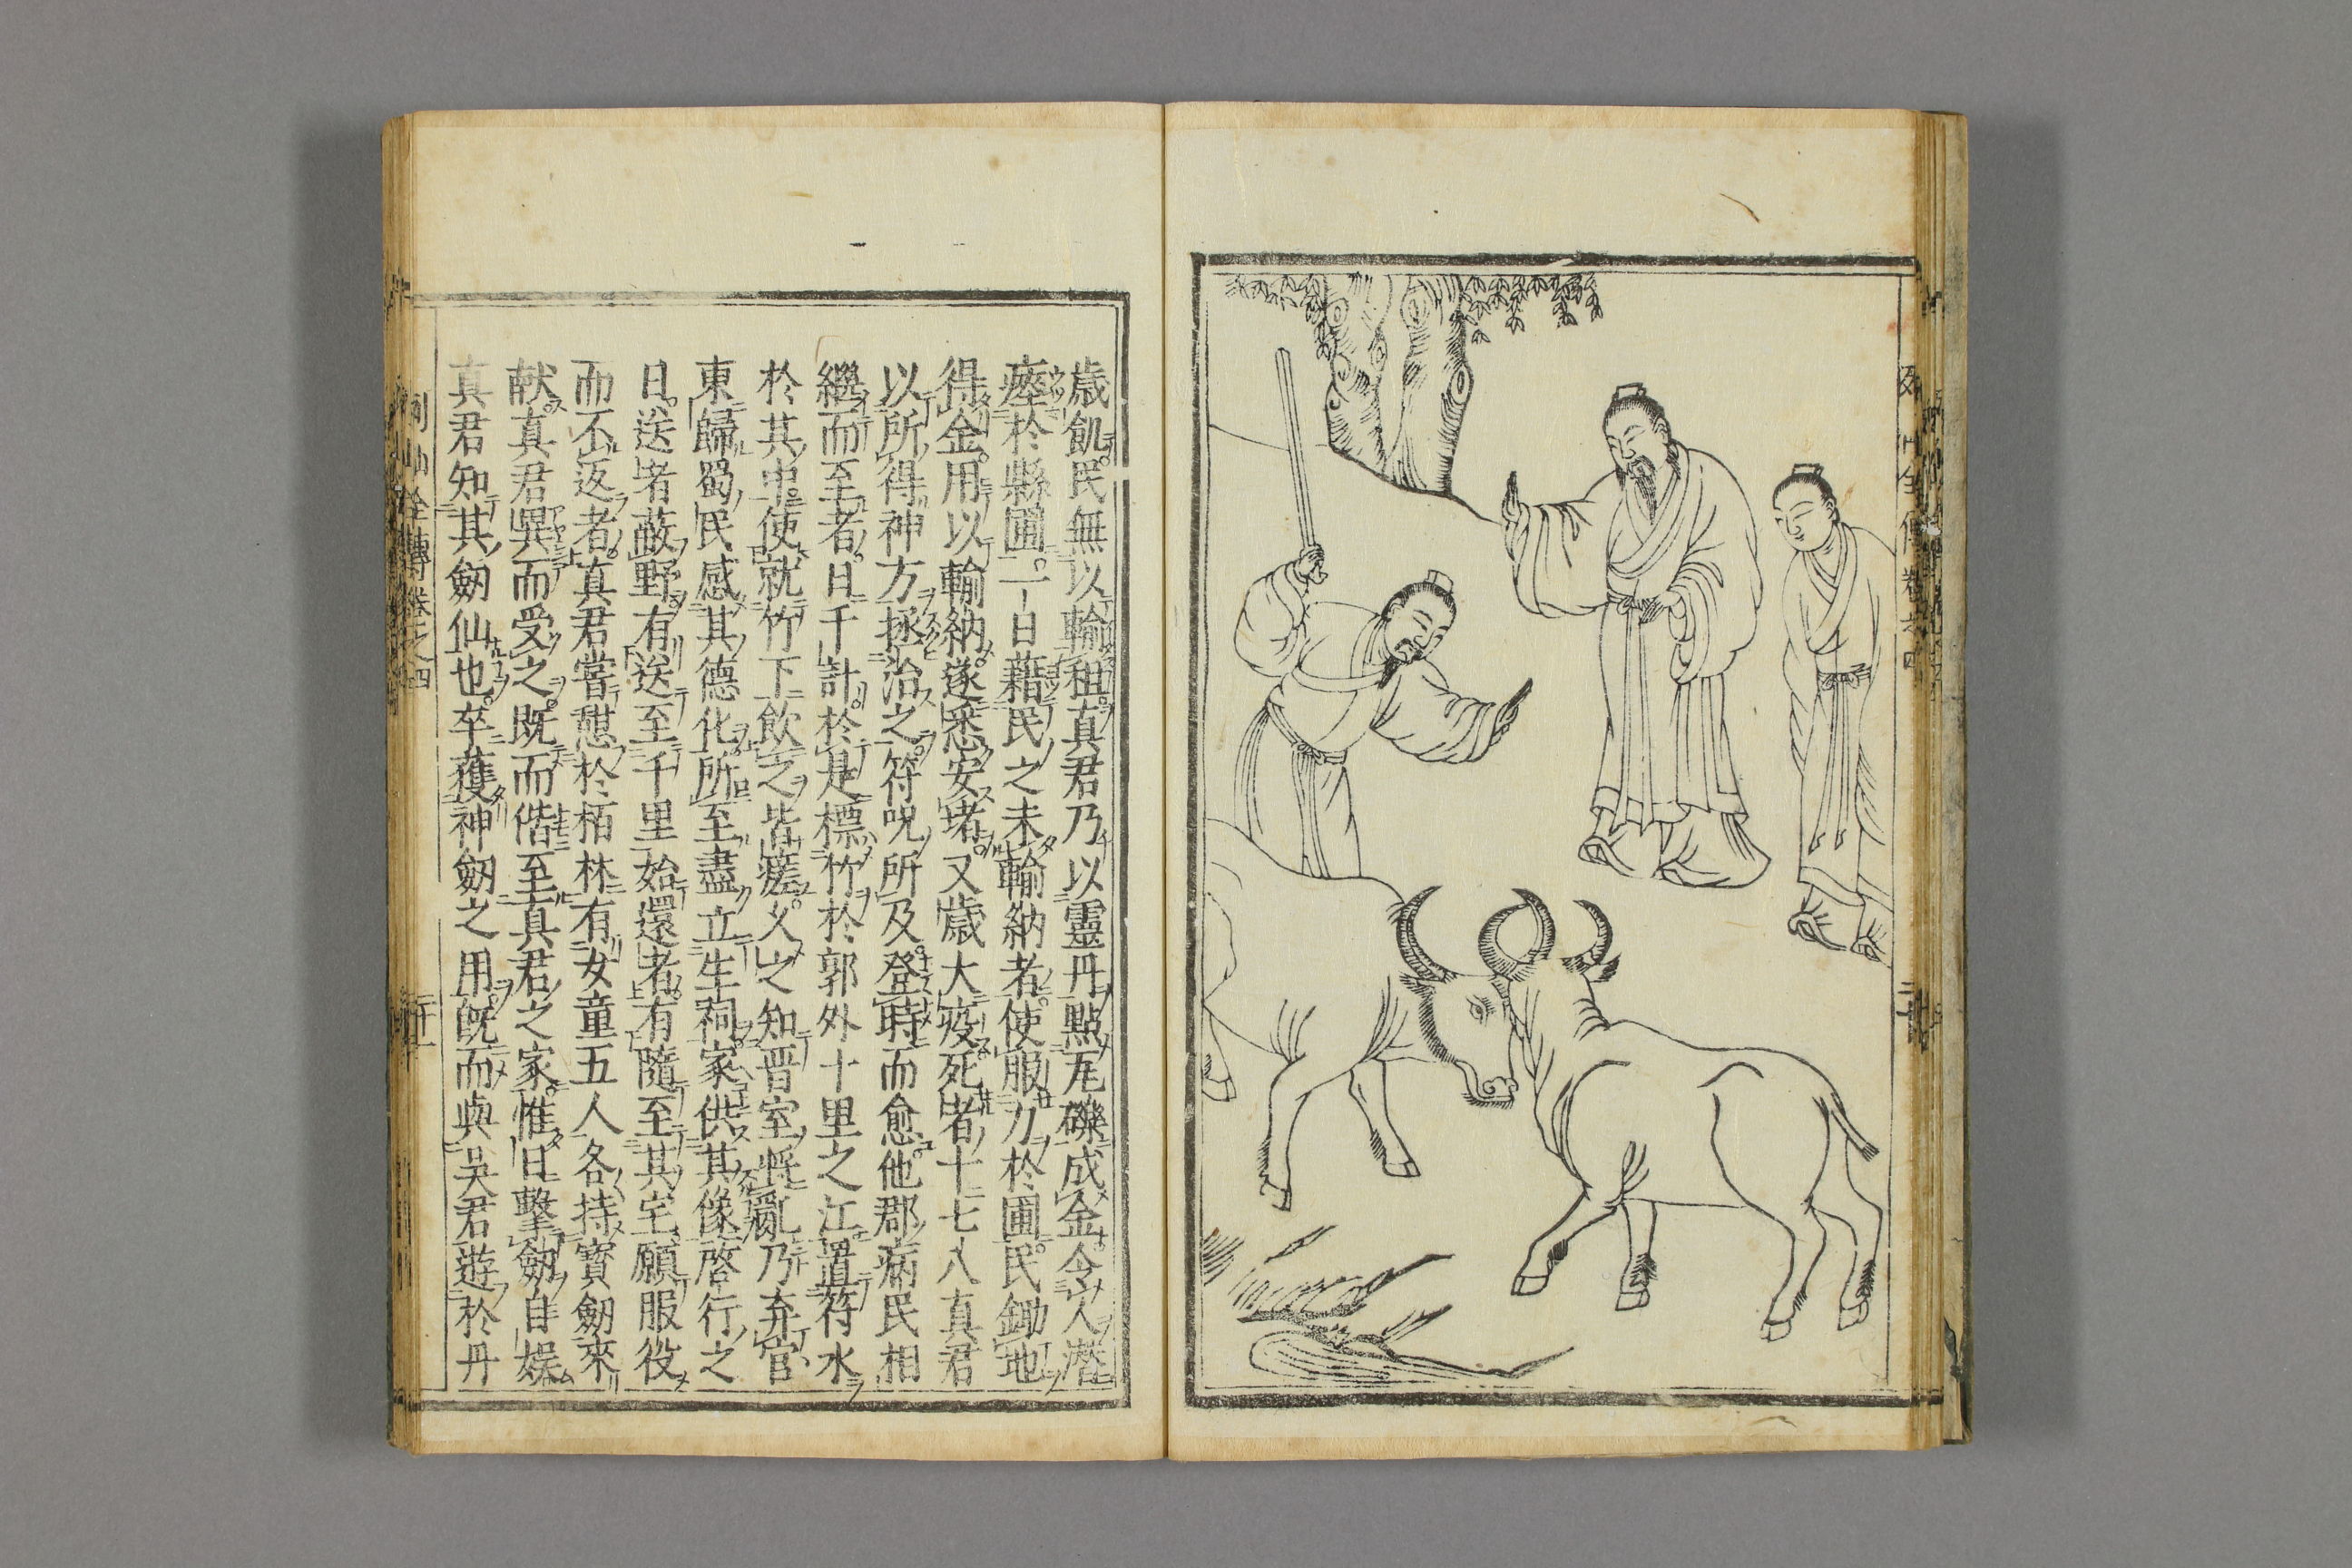 歳飢民無以輸租真君乃以靈丹點瓦礫成金令人潜
瘞於縣圃一日藉民之未輸納者使服力於圃民鋤地
得金用以輸納遂悉安堵又歳大疫死者十七八真君
以所得神方拯治之符呪所及登時而愈他郡病民相
繼而至者日千計於是標竹於郭外十里之江置符水
於其中使就竹下飲之皆瘥久之知晋室將亂乃弃官
東歸蜀民感其德化所至盡立生祠家供其像啓行之
日送者蔽野有送至千里始還者有隨至其宅願服役
而不返者真君嘗憇於栢林有女童五人各持寳劔來
献真君異而受之既而偕至真君之家惟日擊劔自娯
真君知其劔仙也卒獲神劔之用既而與吳君遊於丹
列仙全傳卷之四